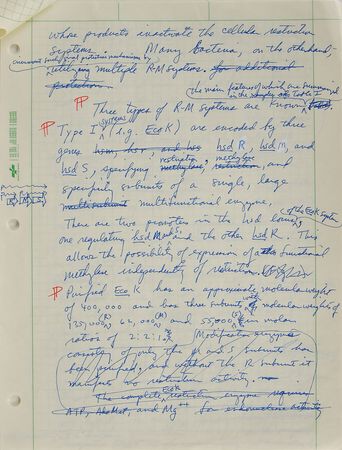 whose products inactivate the cellular restriction
systems. Many bacteria, on the other hand,
utilizing multiple R-M systems. for additional
protection.
the main features of which are summarized
in the
Three types of R-M systems are known
Type I systems (e.g. EcoK) are encoded by three
genes hsm, hsr, and hss hsd R, hsd M, and
hsd S, specifying methylase, restriction, restriction, methylase, and
specificity subunits of a single, large
multisubunit multifunctional enzyme.
There are two promoters in the hsd locus of the EcoK system
one regulating hsd M and S and the other hsd R. This
allows the possibility of expression of a functional
methylase independently of restriction.
Purified EcoK has an approximate molecular weight
of 400,000 and has three subunits with molecular weights of
(R) 62,000 (M) and 55,000 (S) in molar
ratios of 2:2:1.
Modification enzymes
consisting of only the M and S subunits has
been purified, and without the R subunit it
manifests no restriction activity.
The complete EcoK restriction enzyme requires
ATP, AdoMet, and Mg++ for endonuclease activity